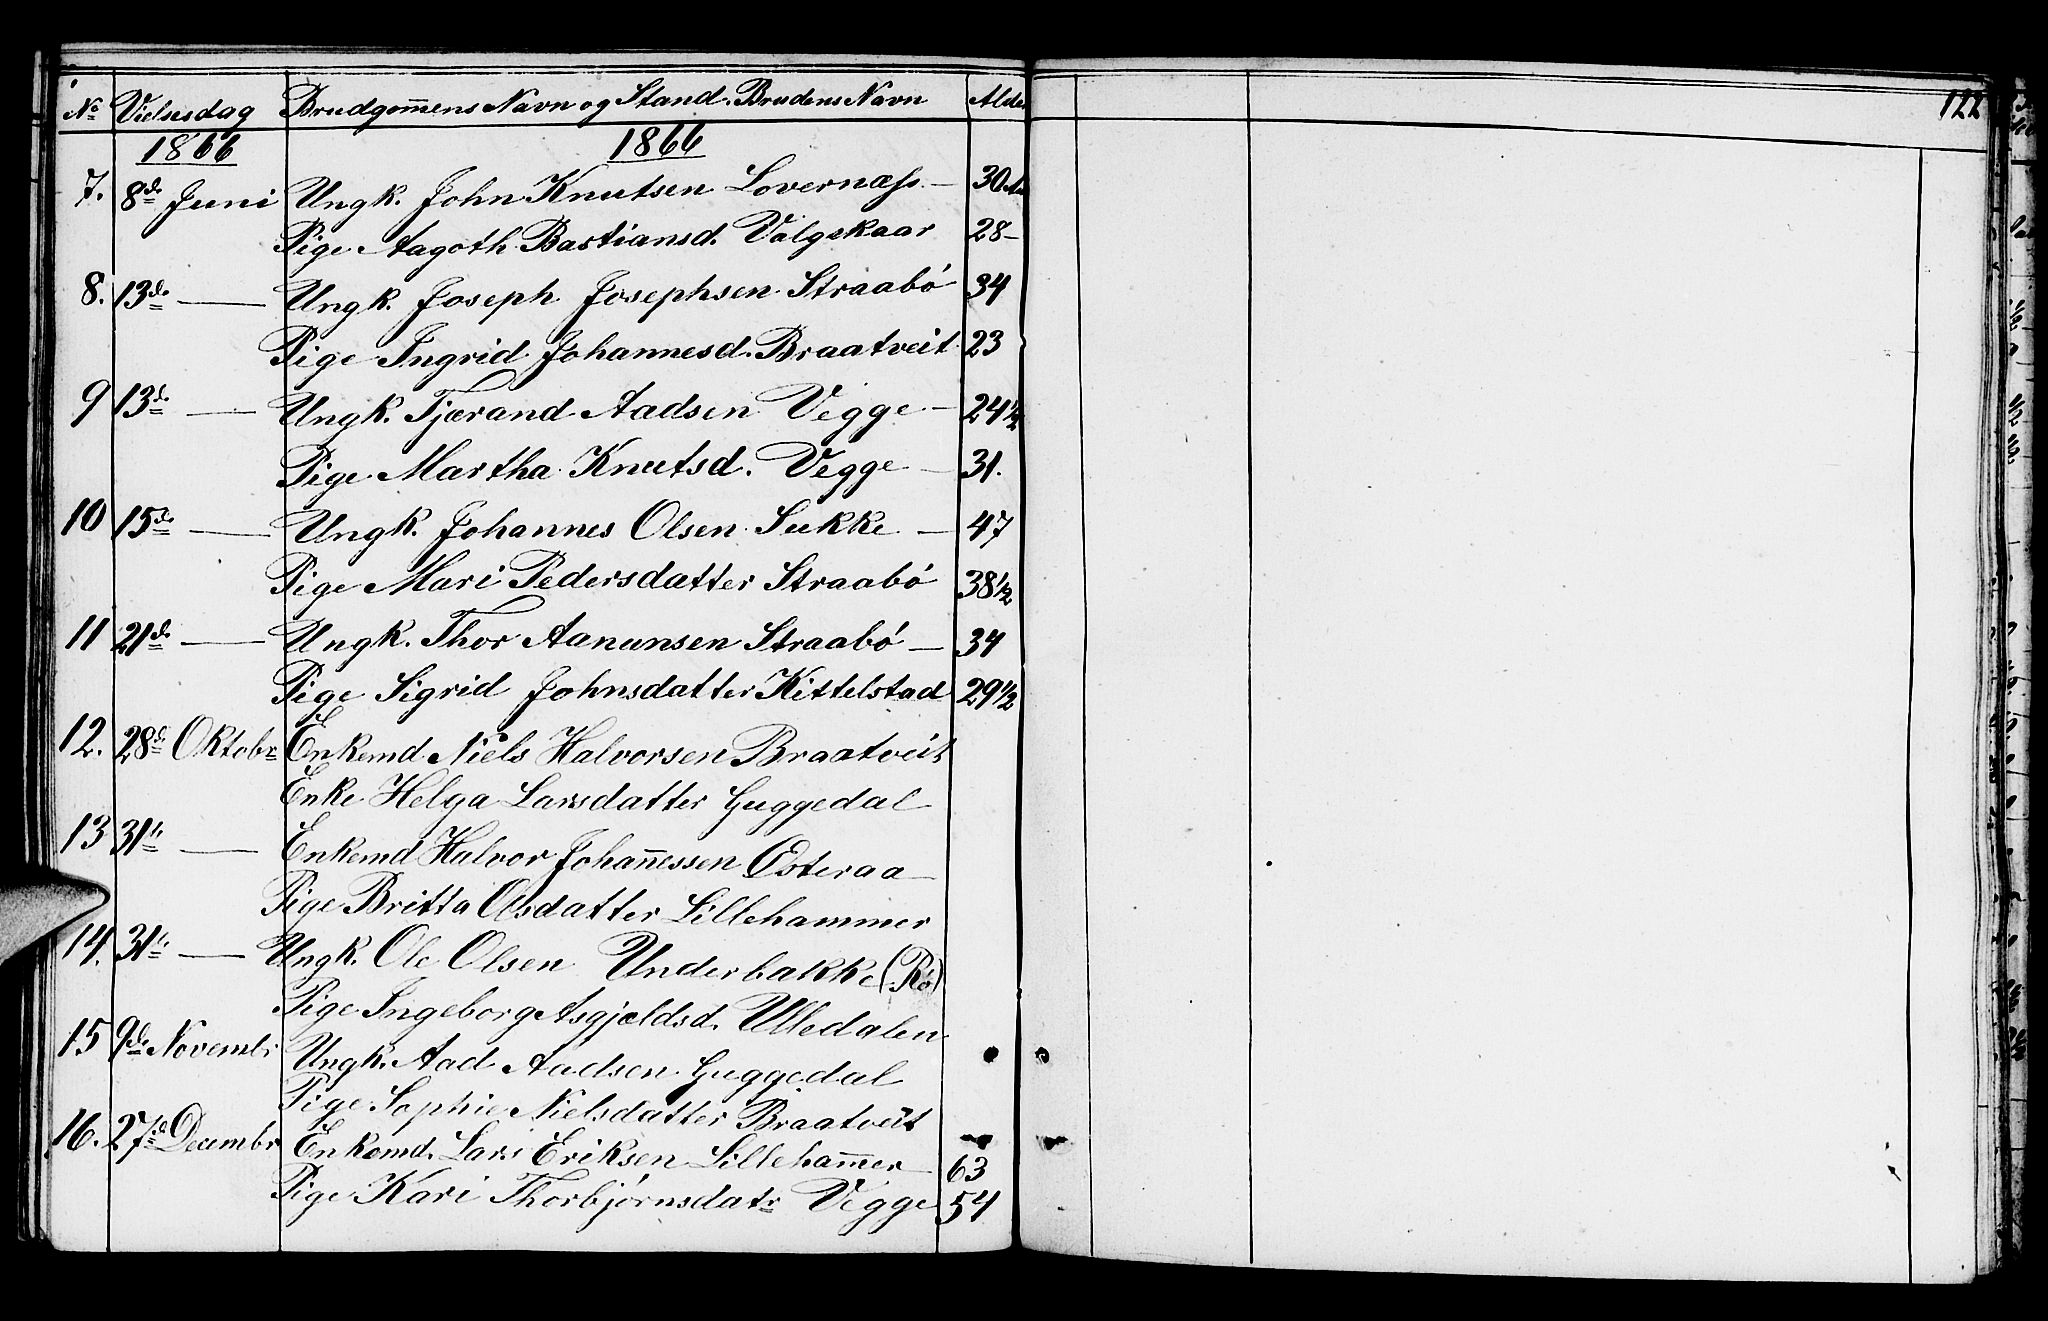 No Vielsesdag Brudgom̅ens Navn og Stand. Brudens Navn Alder
122
1866 1866
7. 8de Juni Ungk. John Knutsen Lovernæss — 30 Aar
Pige Aagoth Bastiansd. Valgskaar 28 —
8. 13de — Ungk. Joseph Josephsen Straabó 34
Pige Ingrid Johannesd. Braatveit 23
9 13de — Ungk. Tjærand Aadsen Vegge — 24 1/2
Pige Martha Knutsd. Vegge — 31.
10 15de — Ungk. Johannes Olsen Sukke — 47
Pige Mari Pedersdatter Straabó 38 1/2
11 21de — Ungk. Thor Aanunsen Straabó — 34
Pige Sigrid Johnsdatter Kittelstad 29 1/2
12. 28de Oktobr Enkemd Niels Halvorsen Braatveit
Enke Helga Larsdatter Guggedal
13 31te — Enkemd Halvor Johan̅essen Østeraa —
Pige Britta Olsdatter Lillehammer
14. 31te — Ungk. Ole Olsen Underbakke (Rö)
Pige Ingeborg Asgjeldsd. Ulledalen
15 9de Novembr Ungk. Aad Aadsen Guggedal
Pige Sophie Nielsdatter Braatveit
16. 27de Decembr Enkemd. Lars Eriksen Lilleham̅er — 63
Pige Kari Thorbjórnsdatr Vegge 54